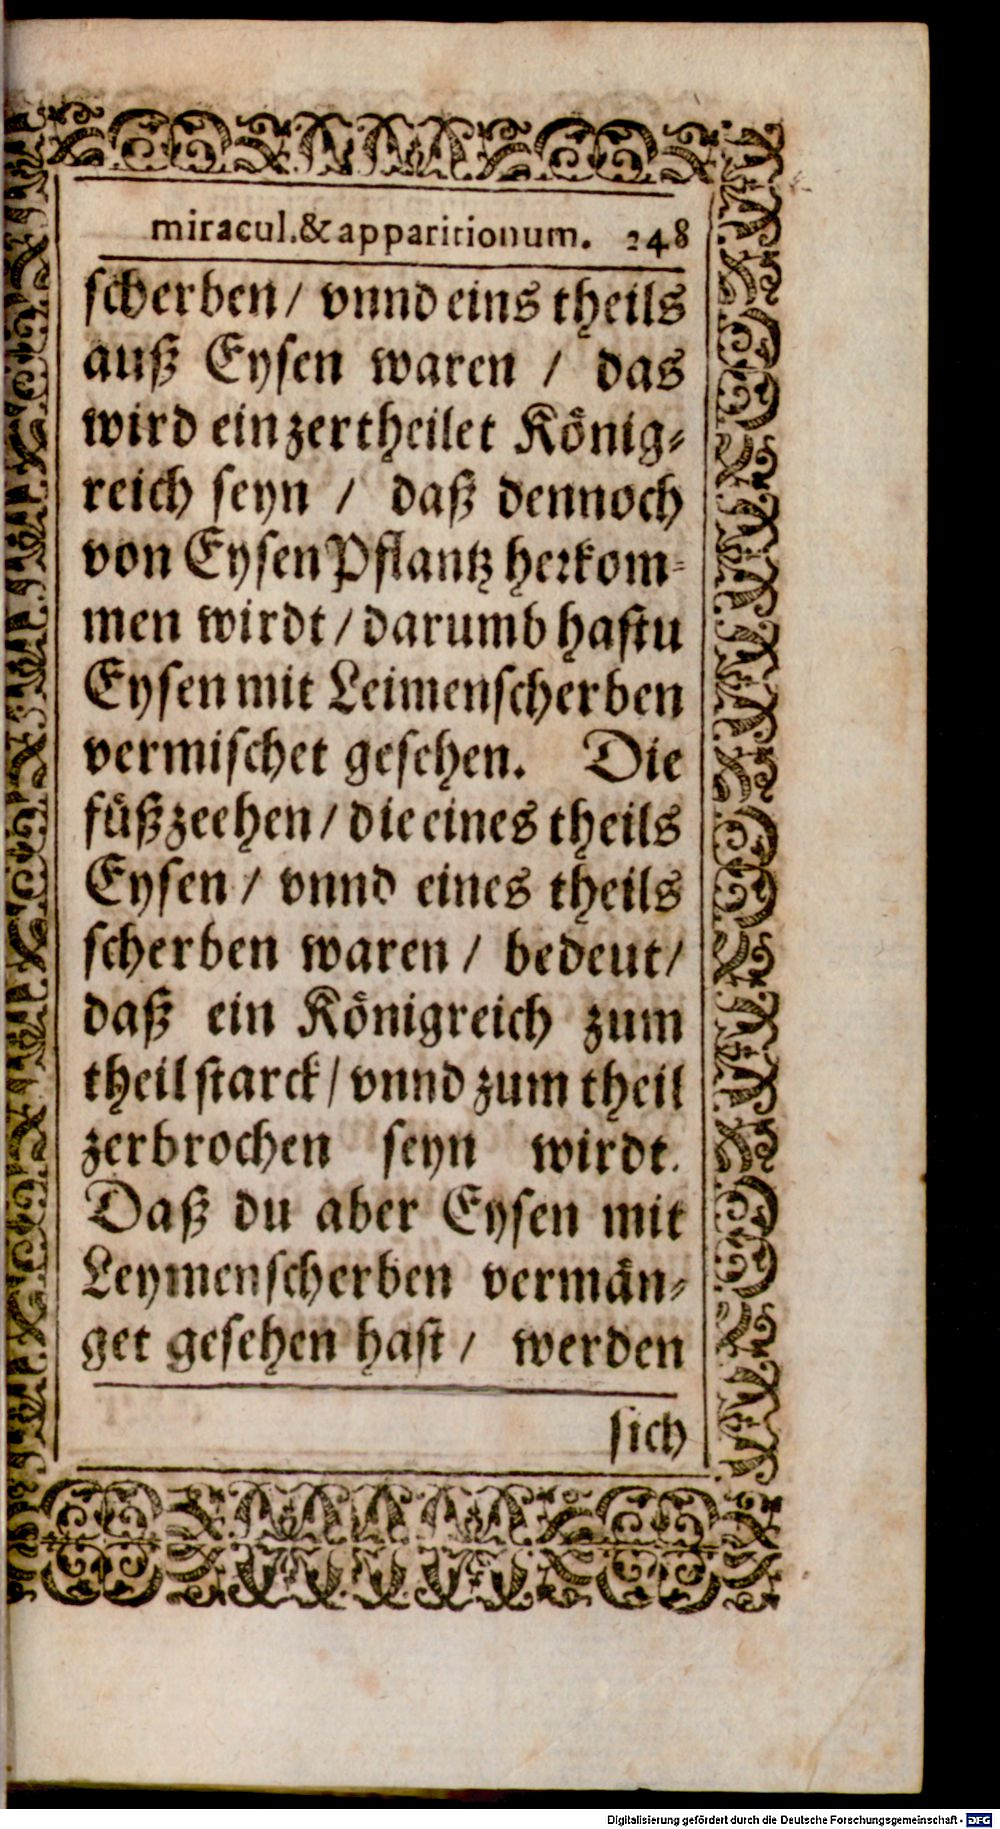 miracul.& apparitionum. 248
scherben / vnnd eins theils
auß Eysen waren / das
wird ein zertheilet König-
reich seyn / daß dennoch
von Eysen Pflantz herkom-
men wirdt / darumb hastu
Eysen mit Leimenscherben
vermischet gesehen. Die
füßzeehen / die eines theils
Eysen / vnnd eines theils
scherben waren / bedeut /
daß ein Königreich zum
theil starck / vnnd zum theil
zerbrochen seyn wirdt.
Daß du aber Eysen mit
Leymenscherben vermän-
get gesehen hast / werden
sich
Digitalisierung gefördert durch die Deutsche Forschungsgemeinschaft - DFG